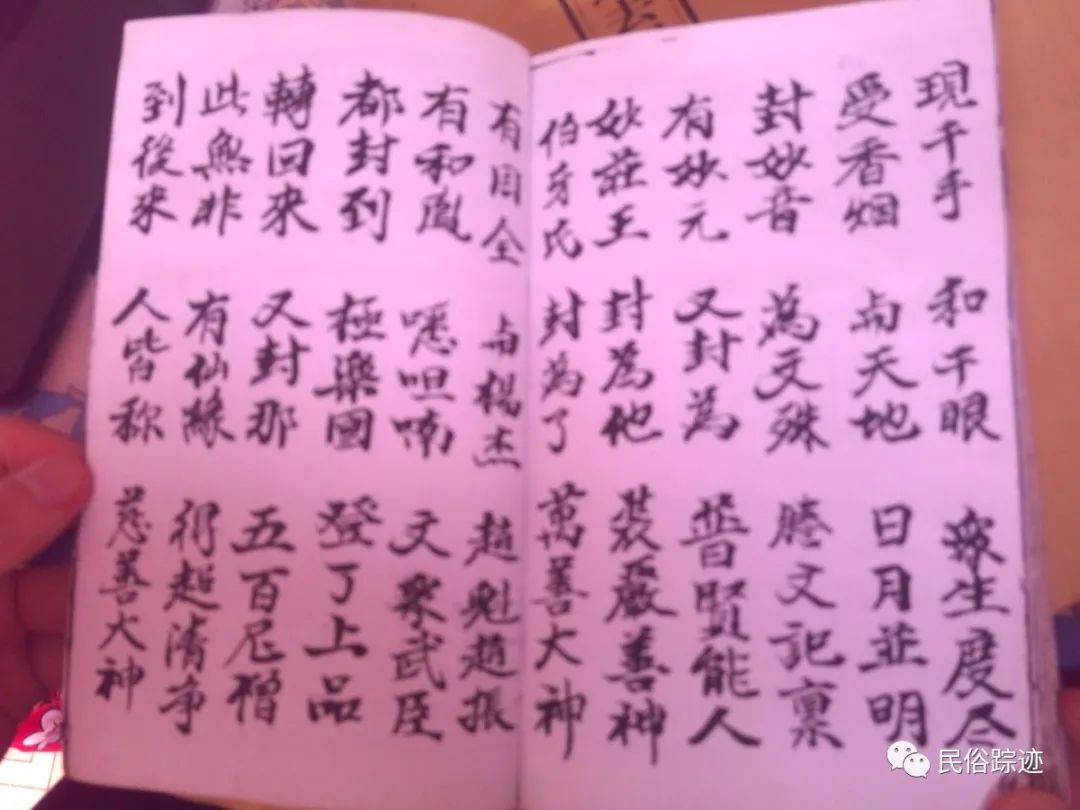 现千手 和千眼 众生度尽
受香烟 与天地 日月並明
封妙音 為文殊 勝文記禀
有妙元 又封為 普賢能人
妙莊王 封為他 装嚴善神
伯牙氏 封為了 萬善大神
有目全 与楊杰 趙魁趙振
有和胤 恶呾喃 文衆武臣
都封到 極樂國 登了上品
轉回來 又封那 五百尼僧
此無非 有仙緣 得超清爭
到後來 人皆称 慈善大神
民俗踪迹